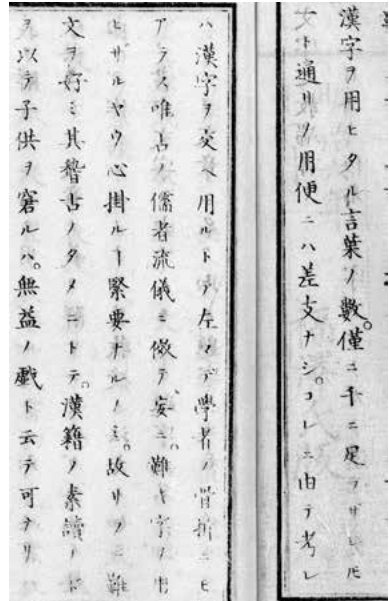 漢字ヲ用ヒタル言葉ノ數。僅ニ千ニ足ラザレ𪜈
文ト通リノ用便ニハ差支ナシ。コレニ由テ考レ
ハ漢字ヲ交ヘ用ルトテ左マデ學者ノ骨折ニモ
アラズ唯古ノ儒者流儀ニ傚テ妄ニ。難キ字ヲ用
ヒザルヤウ心掛ルヿ緊要ナルノミ。故サラニ難
文ヲ好ミ其稽古ノタメニトテ。漢籍ノ素讀ナド
ヲ以テ子供ヲ窘ルハ。無益ノ戯ト云テ可ナリ